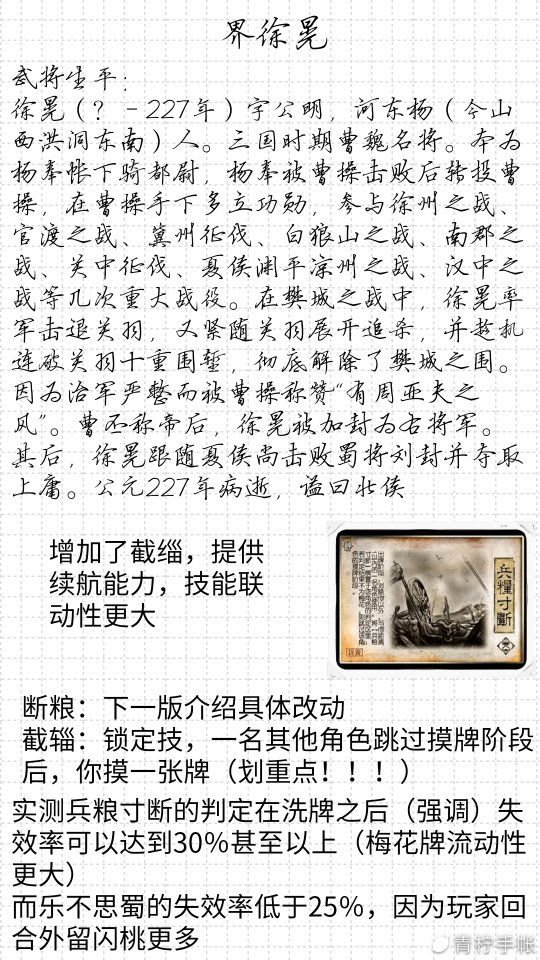 界徐晃
武将生平：
徐晃（？－227年）字公明，河东杨（今山
西洪洞东南）人。三国时期曹魏名将。本为
杨奉帐下骑都尉，杨奉被曹操击败后转投曹
操，在曹操手下多立功勋，参与徐州之战、
官渡之战、冀州征伐、白狼山之战、南郡之
战、关中征伐、夏侯渊平凉州之战、汉中之
战等几次重大战役。在樊城之战中，徐晃率
军击退关羽，又紧随关羽展开追杀，并趁机
连破关羽十重围堑，彻底解除了樊城之围。
因为治军严整而被曹操称赞“有周亚夫之
风”。曹丕称帝后，徐晃被加封为右将军。
其后，徐晃跟随夏侯尚击败蜀将刘封并夺取
上庸。公元227年病逝，谥曰壮侯
增加了截缁，提供
续航能力，技能联
动性更大
兵糧寸斷
断粮：下一版介绍具体改动
截辎：锁定技，一名其他角色跳过摸牌阶段
后，你摸一张牌（划重点！！！）
实测兵粮寸断的判定在洗牌之后（强调）失
效率可以达到30%甚至以上（梅花牌流动性
更大）
而乐不思蜀的失效率低于25%，因为玩家回
合外留闪桃更多
青柠手帐